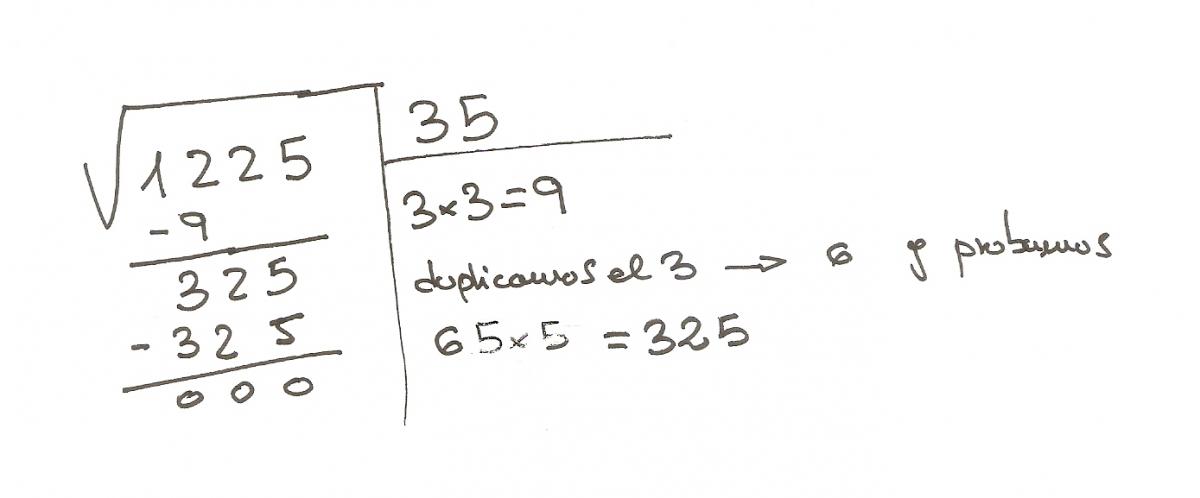 √1225 35
-9 3×3=9
325 duplicamos el 3 → 6 y probamos
-325 65×5 = 325
000